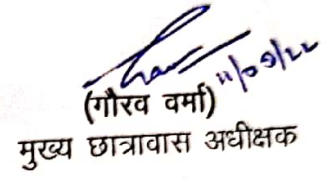 11/09/22
(गौरव वर्मा)
मुख्य छात्रावास अधीक्षक